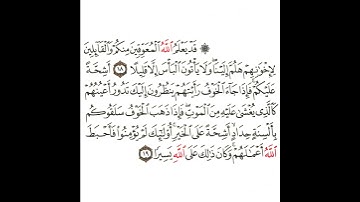 ۞ قَدْ يَعْلَمُ ٱللَّهُ ٱلْمُعَوِّقِينَ مِنكُمْ وَٱلْقَآئِلِينَ
لِإِخْوَٰنِهِمْ هَلُمَّ إِلَيْنَا ۖ وَلَا يَأْتُونَ ٱلْبَأْسَ إِلَّا قَلِيلًا ١٨ أَشِحَّةً
عَلَيْكُمْ ۖ فَإِذَا جَآءَ ٱلْخَوْفُ رَأَيْتَهُمْ يَنظُرُونَ إِلَيْكَ تَدُورُ أَعْيُنُهُمْ
كَٱلَّذِى يُغْشَىٰ عَلَيْهِ مِنَ ٱلْمَوْتِ ۖ فَإِذَا ذَهَبَ ٱلْخَوْفُ سَلَقُوكُم
بِأَلْسِنَةٍ حِدَادٍ أَشِحَّةً عَلَى ٱلْخَيْرِ ۚ أُو۟لَٰٓئِكَ لَمْ يُؤْمِنُوا۟ فَأَحْبَطَ
ٱللَّهُ أَعْمَٰلَهُمْ ۚ وَكَانَ ذَٰلِكَ عَلَى ٱللَّهِ يَسِيرًا ١٩